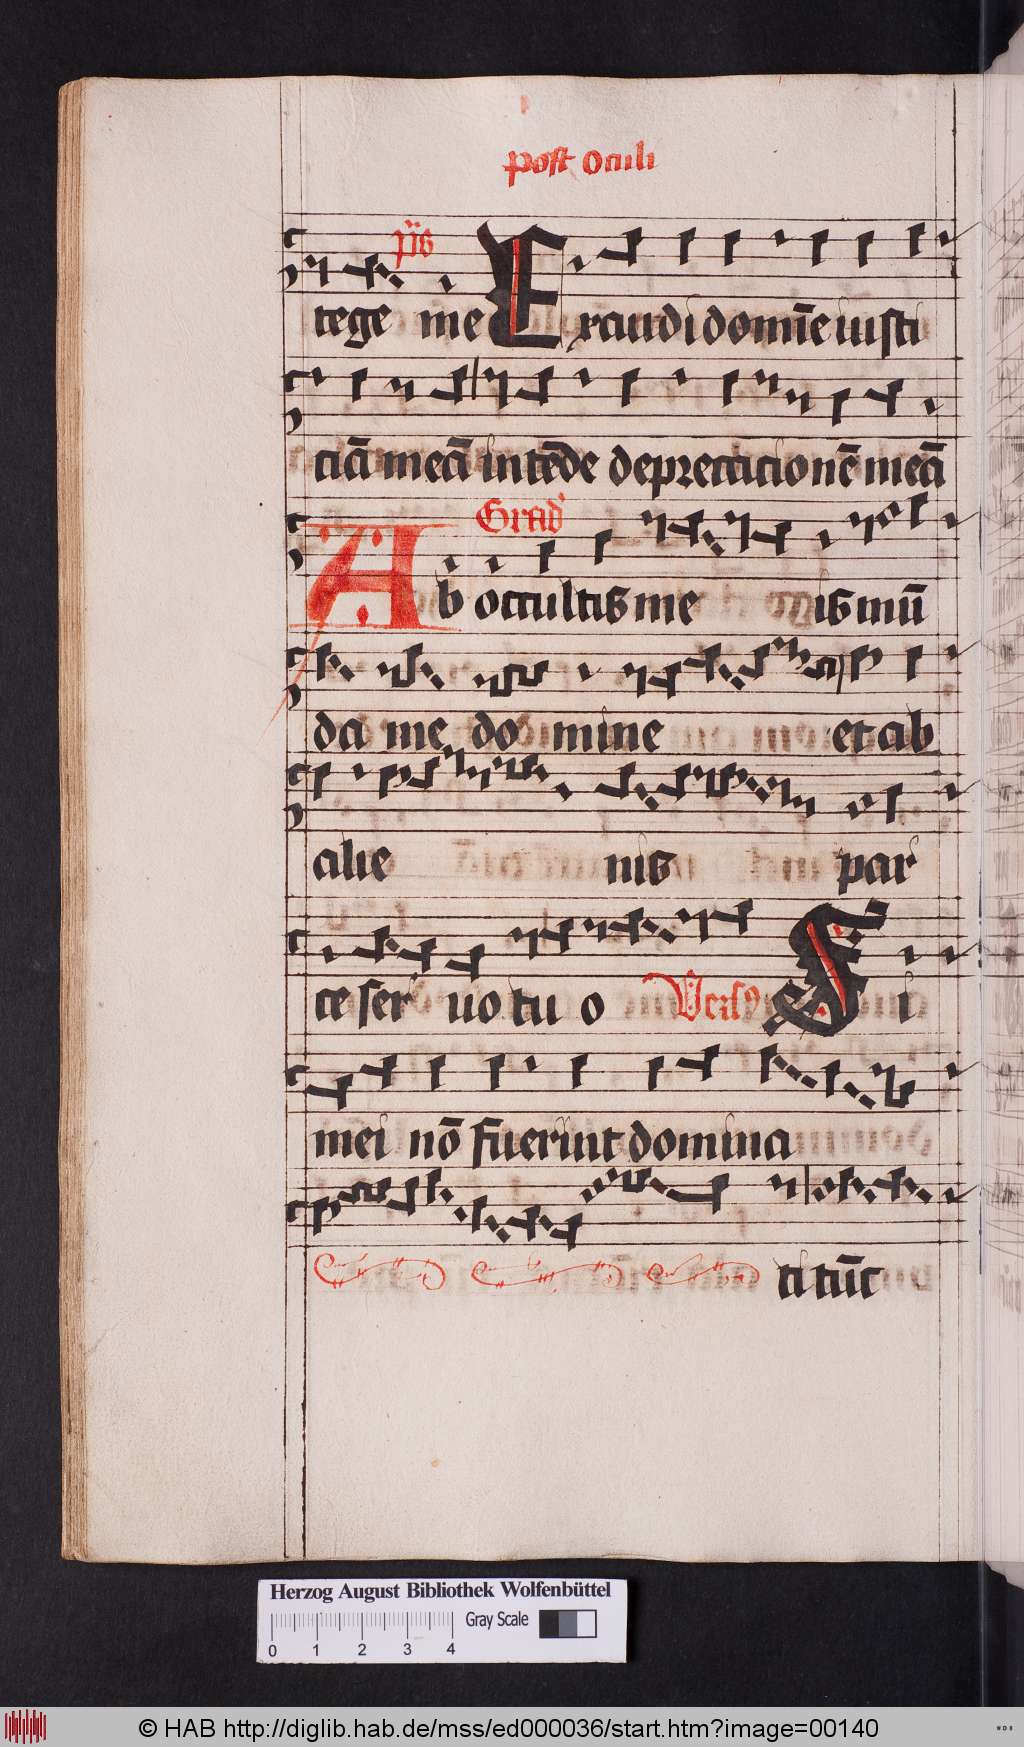 Post Oculi
tege me Ps Exaudi domīe iusti
ciā meā intēde deprecacionē meā
Grad'
Ab occultis me is mū
da me do mine et ab
alie nis par
ce ser uo tu o Versꝯ Si
mei nō fuerint domina
ti tūc
Herzog August Bibliothek Wolfenbüttel
Gray Scale
0 1 2 3 4
© HAB http://diglib.hab.de/mss/ed000036/start.htm?image=00140